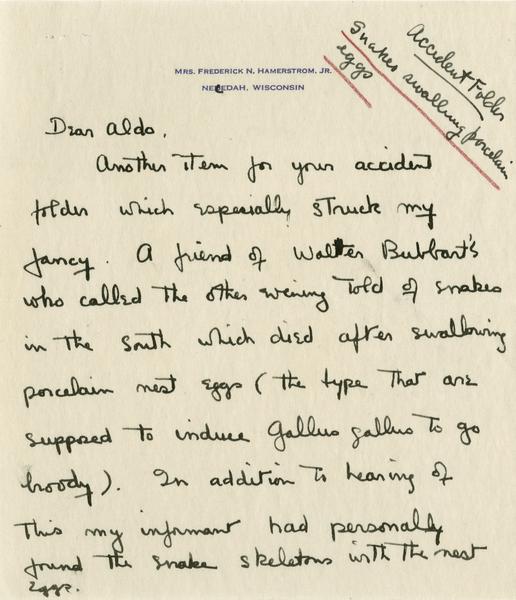 Accident Folder
Snakes swalling porcelain
eggs
MRS. FREDERICK N. HAMERSTROM, JR.
NECEDAH, WISCONSIN
Dear Aldo,
Another item for your accident
folder which especially struck my
fancy. A friend of Walter Bubbart's
who called the other evening told of snakes
in the South which died after swallowing
porcelain nest eggs (the type that are
supposed to induce Gallus gallus to go
broody). In addition to hearing of
this my informant had personally
found the snake skeletons with the nest
eggs.